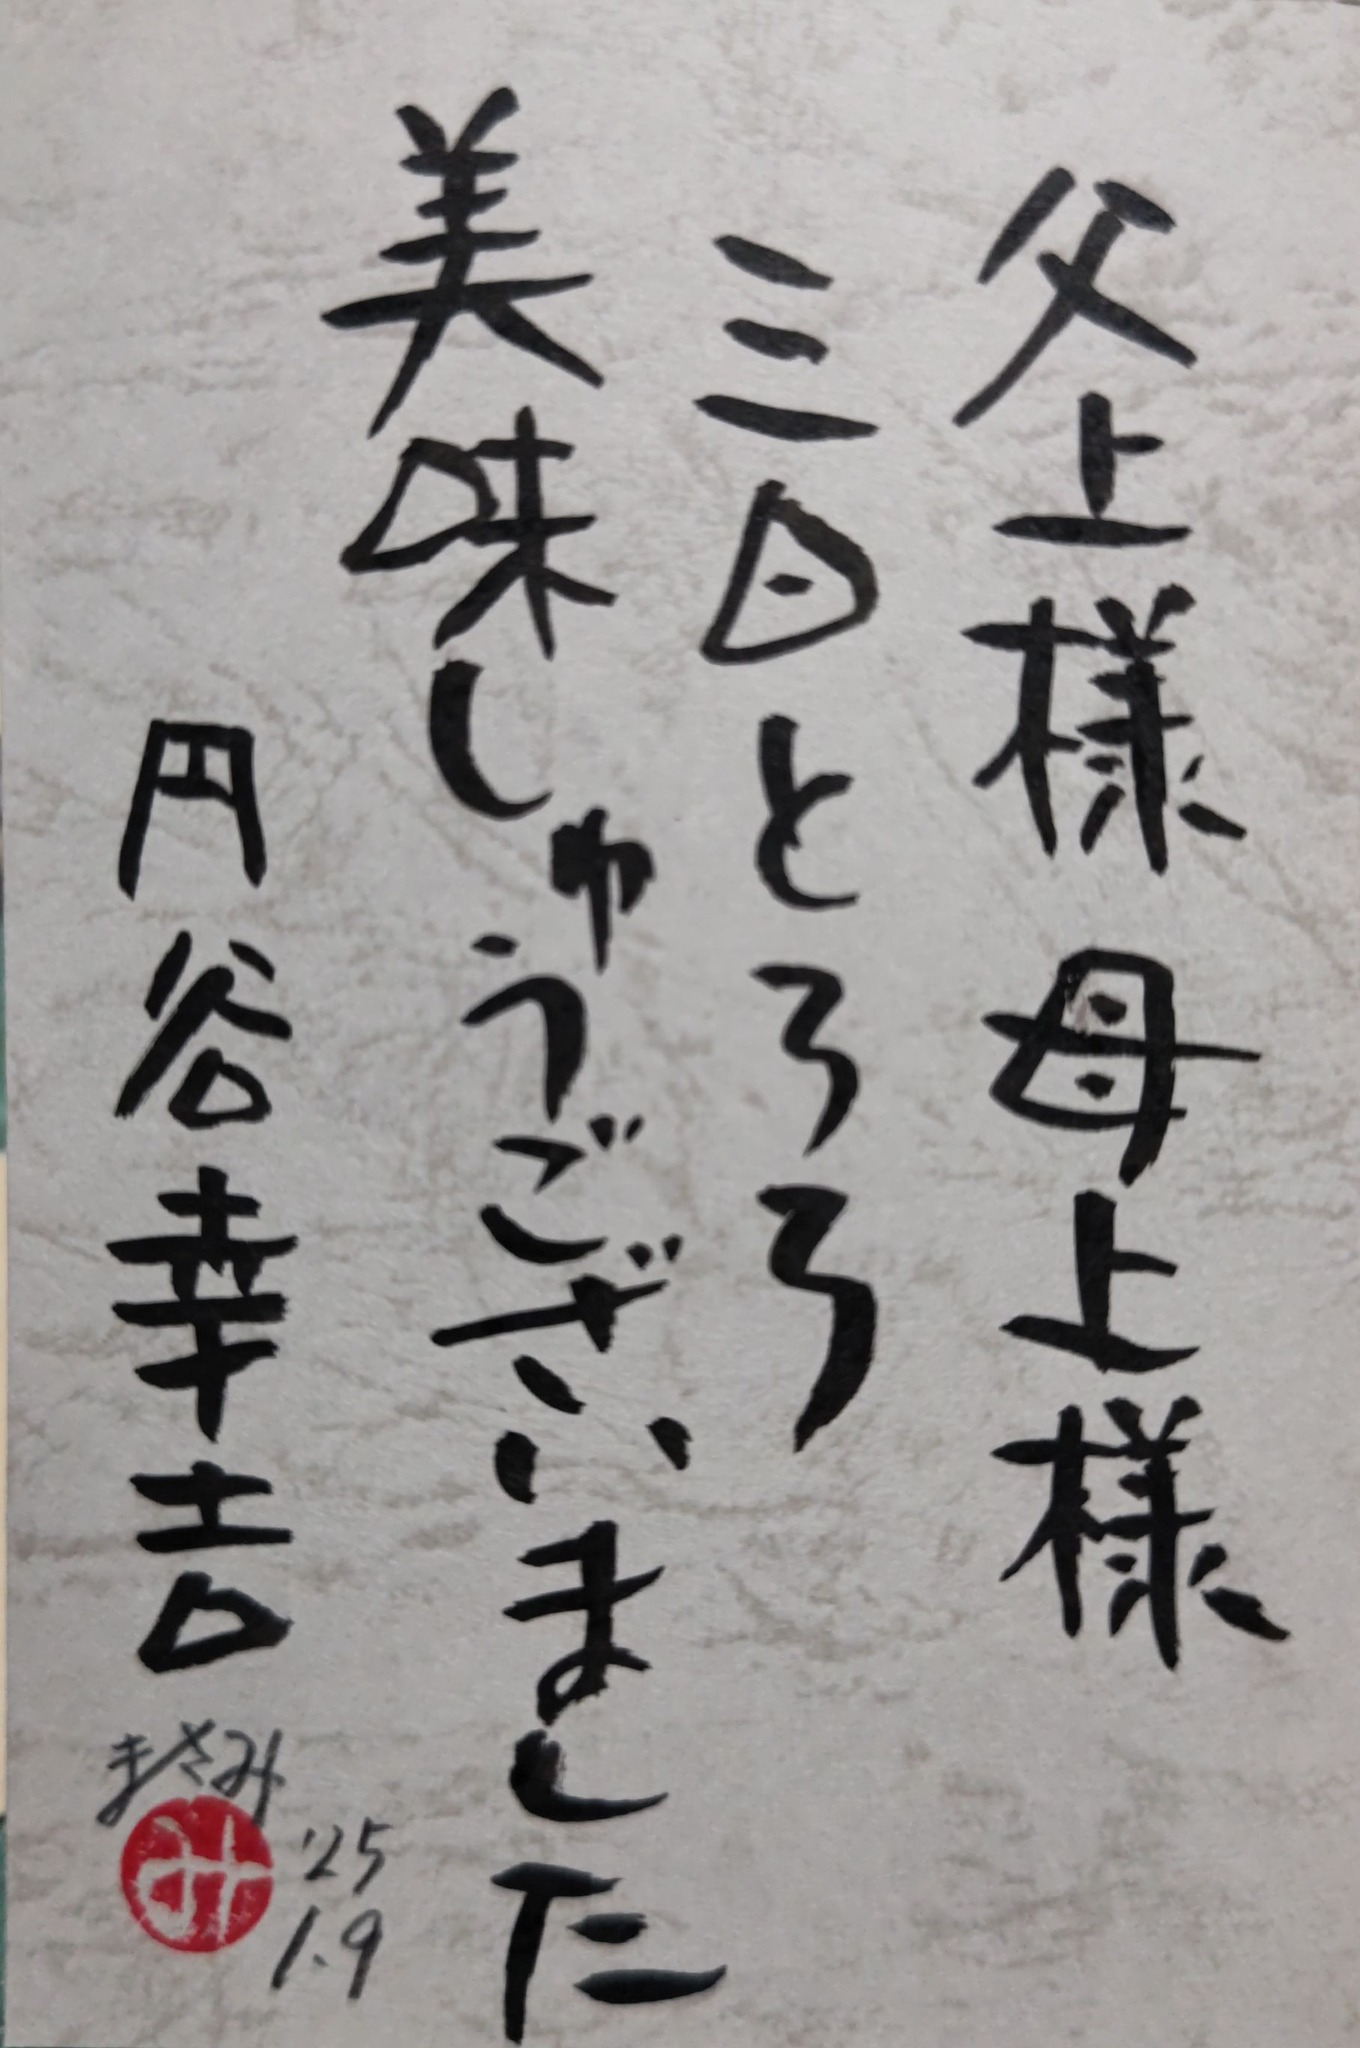 父上様 母上様
三日とろろ
美味しゅうございました
円谷幸吉
まさみ
み
'25
1.9